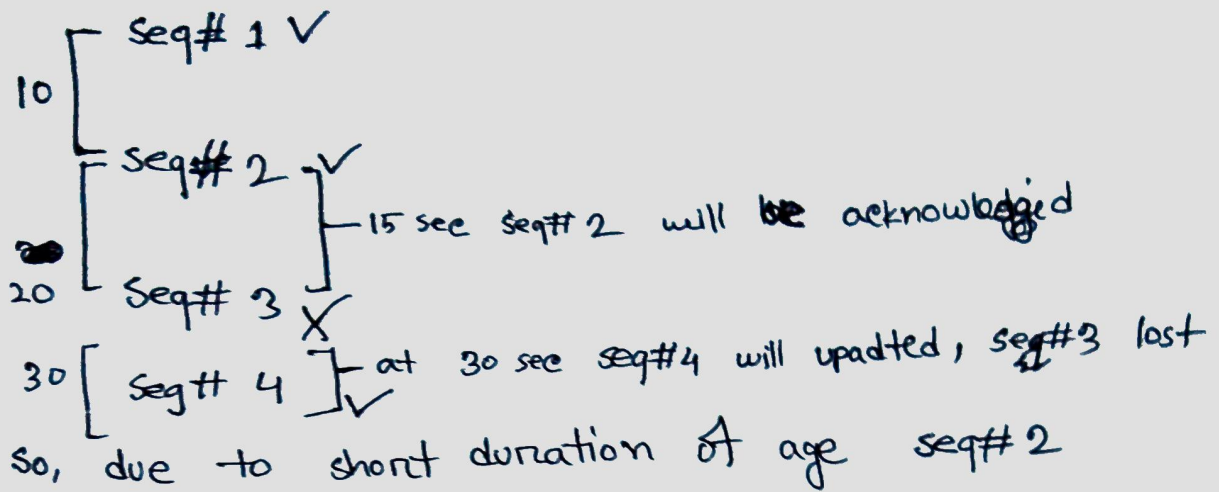 seq# 1 ✓
10
seq# 2 ✓
15 see seq# 2 will be acknowledgid
20
seq# 3 X
30 seq# 4 ✓ at 30 see seq#4 will upadted, seq#3 lost
so, due to short duration of age seq#2